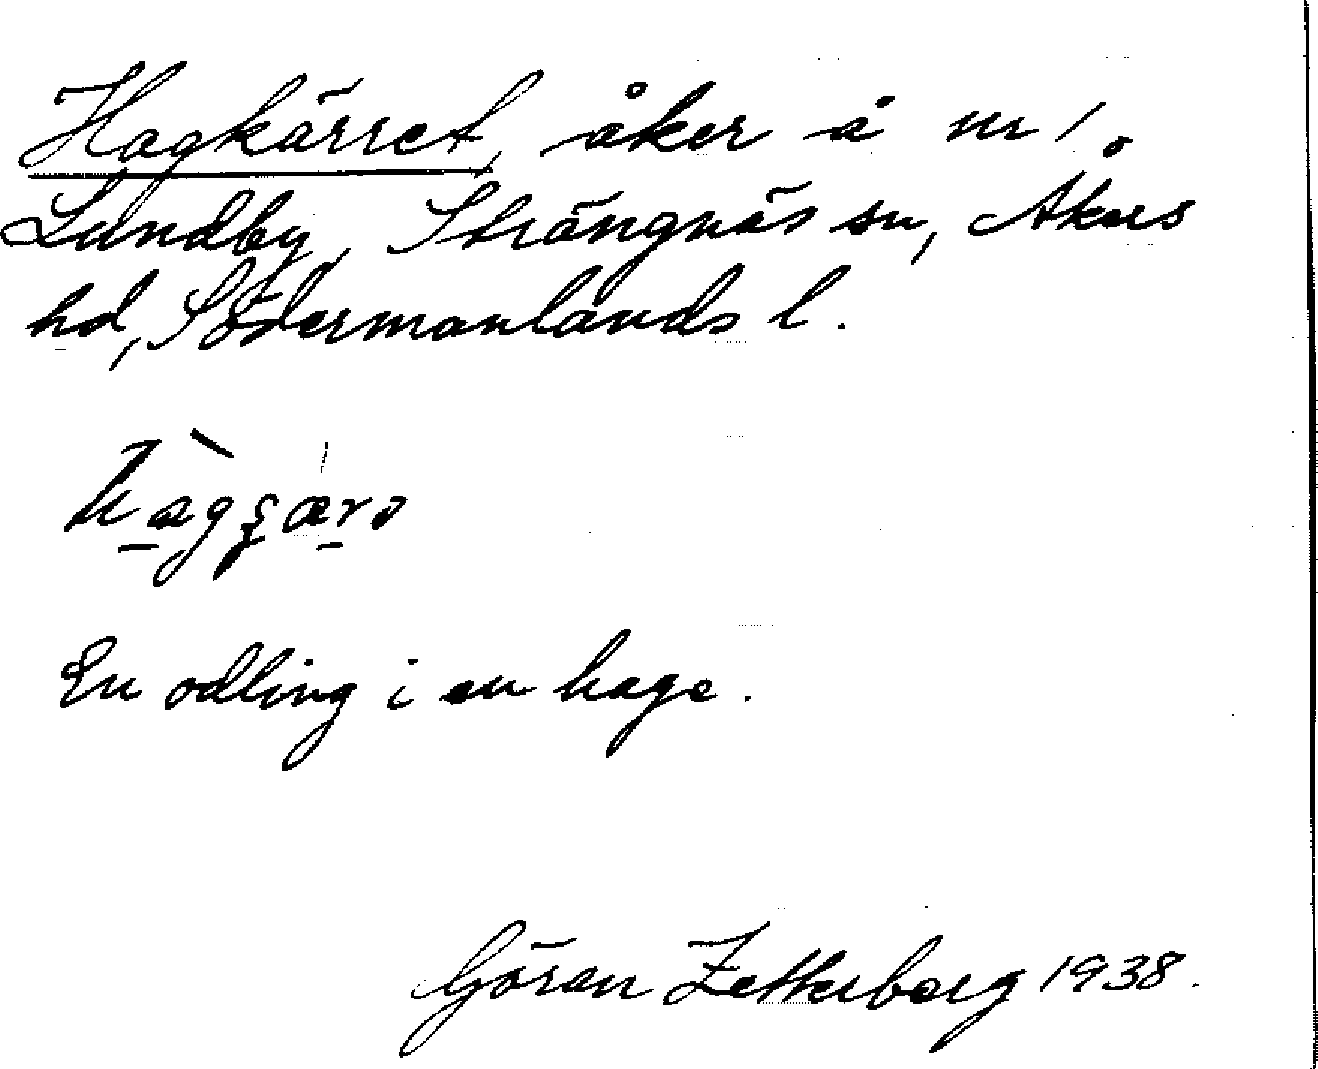 Hagkärret, åker å nr 1,
Lundby, Strängnäs sn, Åkers
hd, Södermanlands l.
En odling i en hage.
Göran Zetterberg 1938.